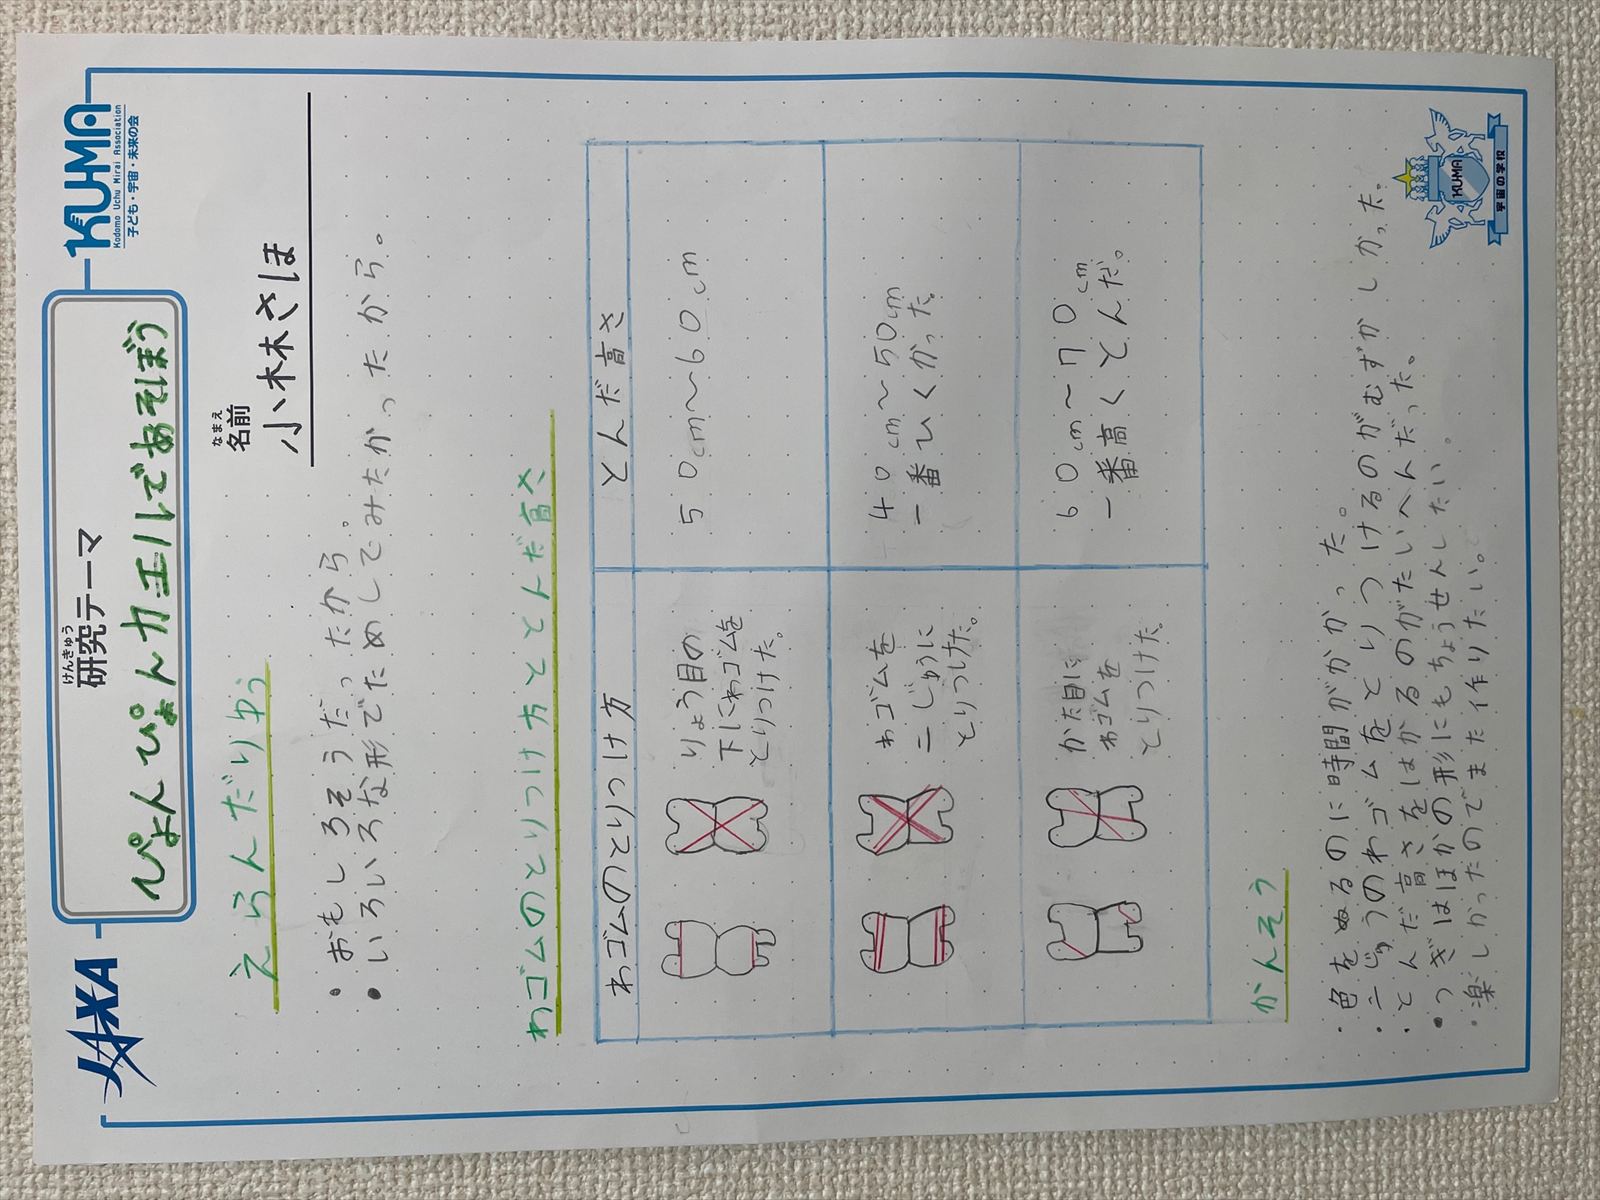 JAXA
けんきゅう
研究テーマ
ぴょんぴょんカエルであそぼう
KUMA
Kodomo Uchu Mirai Association
子ども・宇宙・未来の会
なまえ
名前
小林さほ
えらんだりゆう
・おもしろそうだったから。
・いろいろな形でためしてみたかったから。
わゴムのとりつけ方ととんだ高さ
わゴムのとりつけ方
とんだ高さ
りょう目の
下にわゴムを
とりつけた。
50cm〜60cm
わゴムを
二じゅうに
とりつけた。
40cm〜50cm
一番ひくかった。
かた目に
わゴムを
とりつけた。
60cm〜70cm
一番高くとんだ。
かんそう
・色をぬるのに時間がかかった。
・二じゅうのわゴムをとりつけるのがむずかしかった。
・とんだ高さをはかるのがたいへんだった。
・つぎはほかの形にもちょうせんしたい。
・楽しかったのでまた作りたい。
KUMA
宇宙の学校